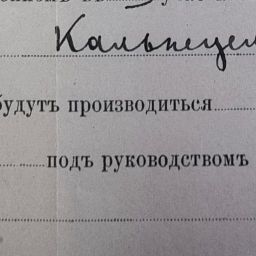 Кальнецем
будутъ производиться
подъ руководствомъ